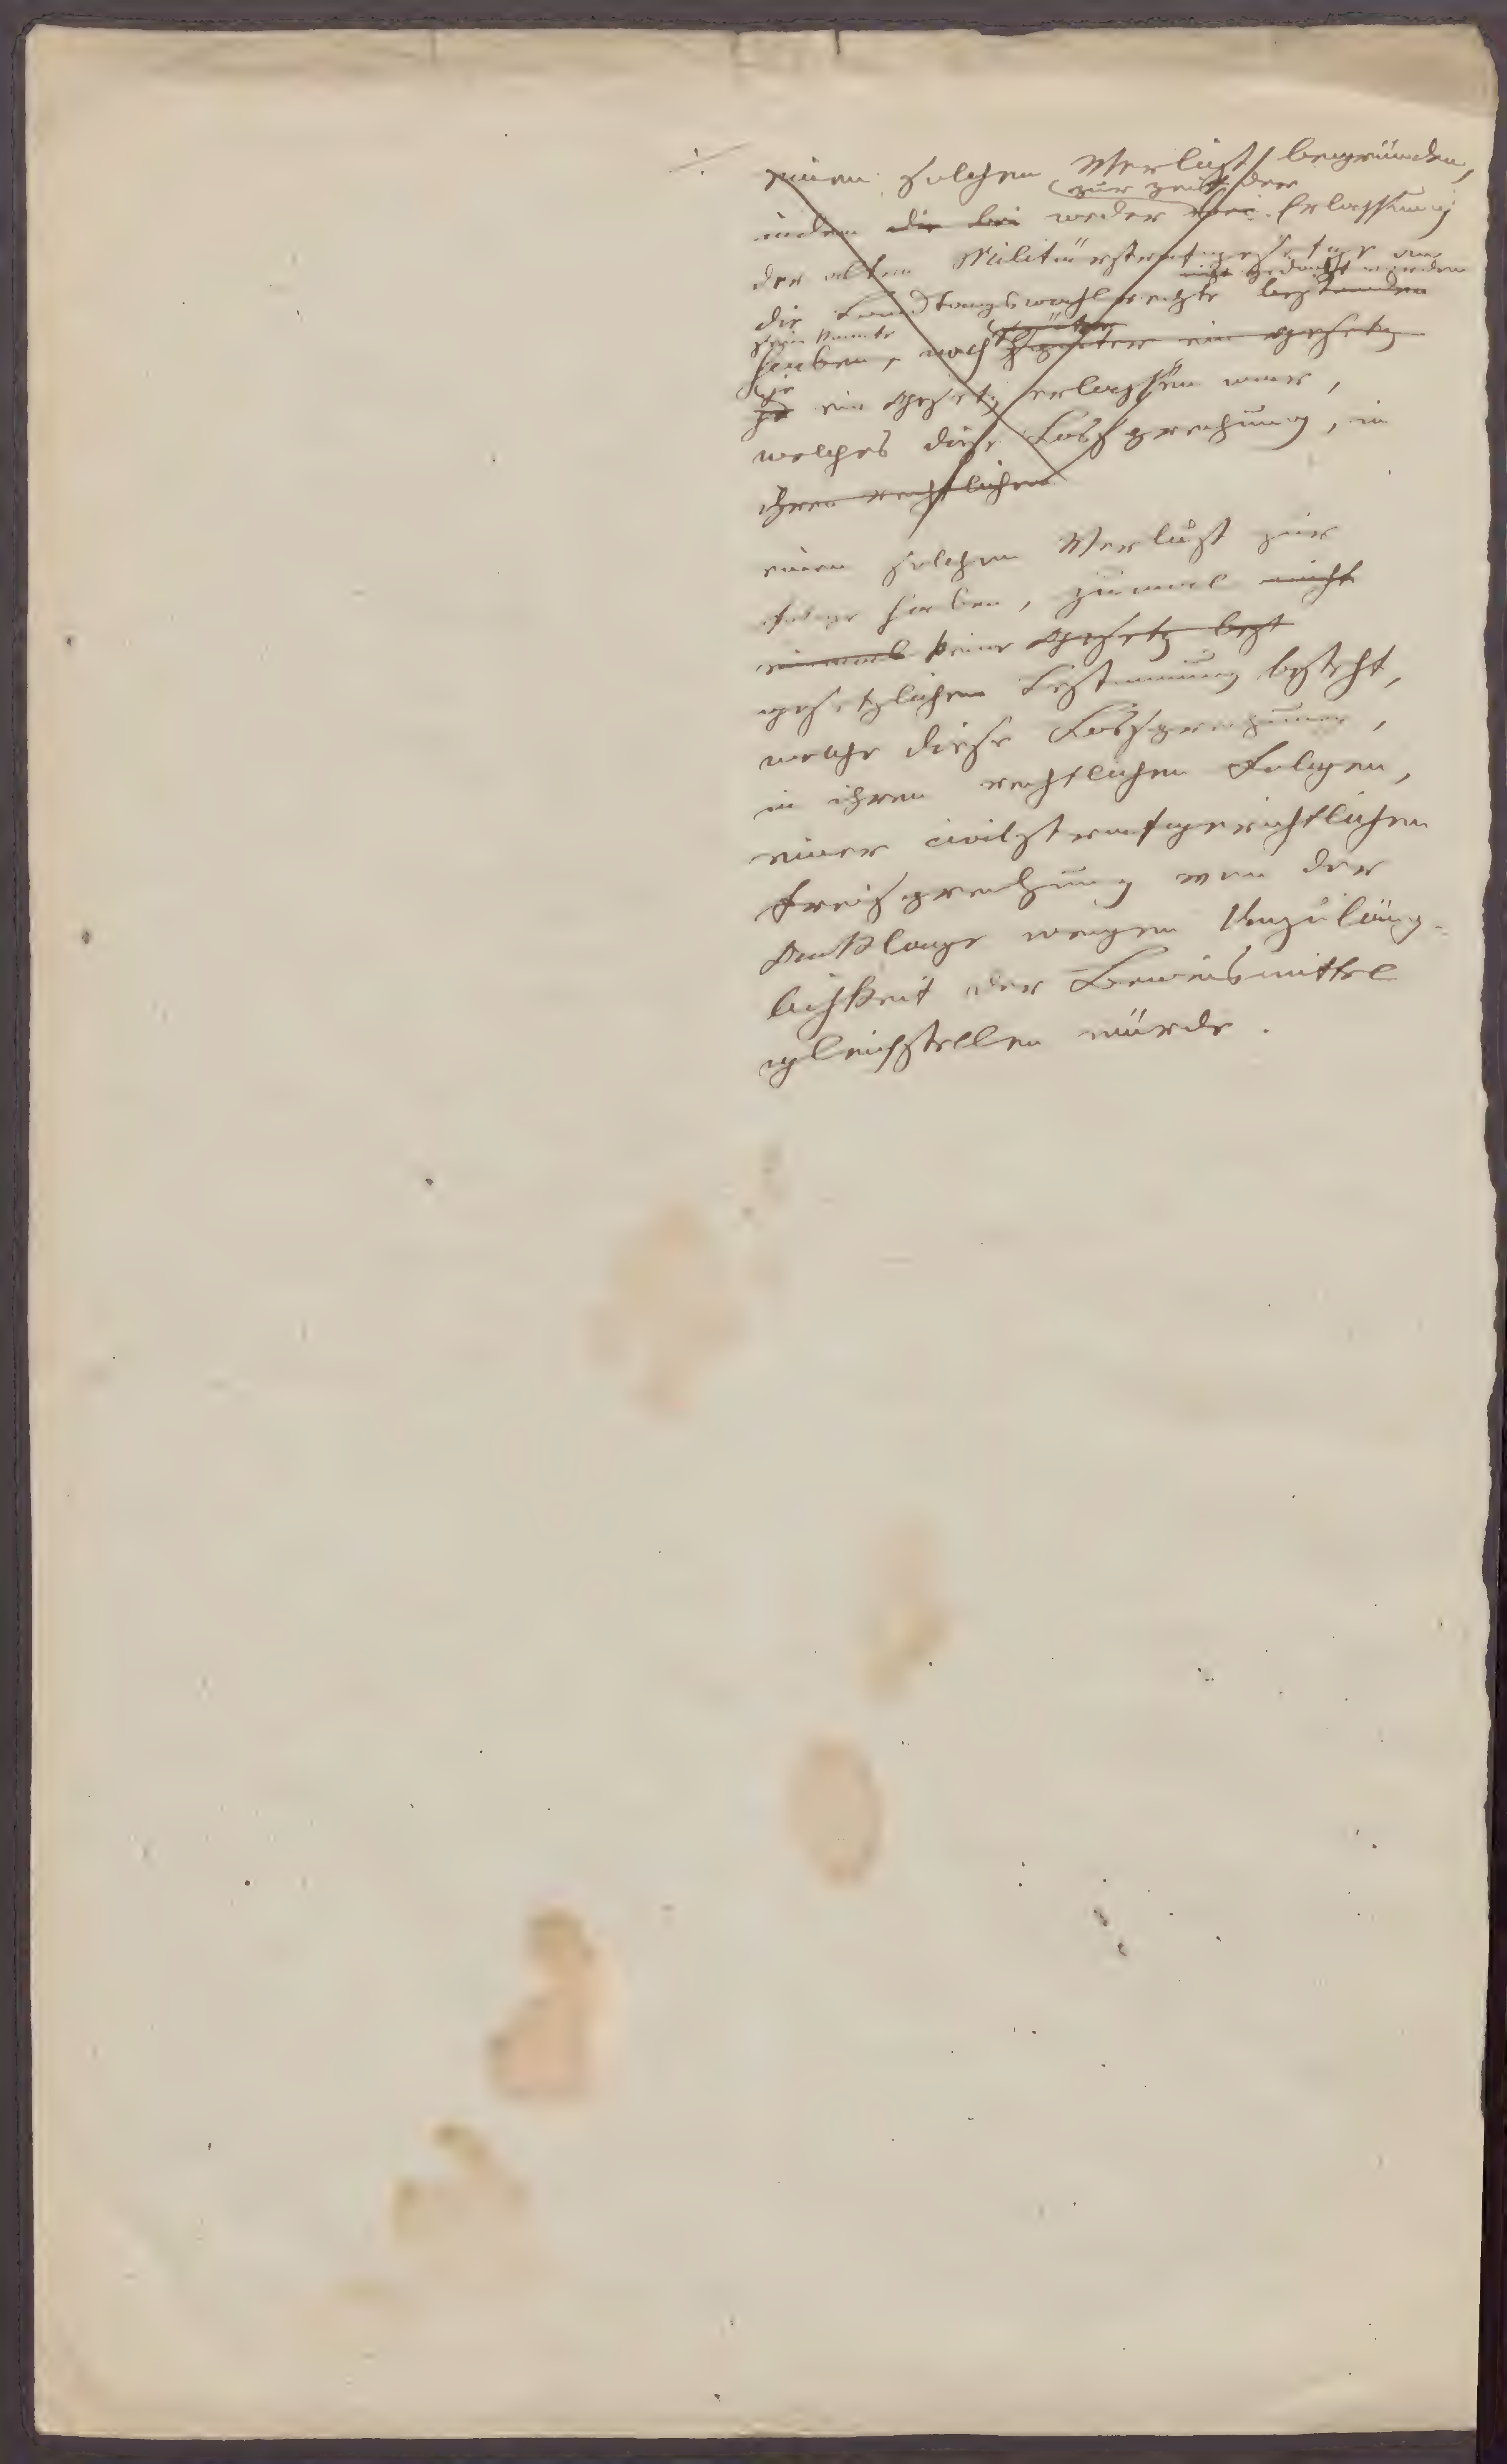 einen solchen Verlust begründen,
zur Zeit der
indem die bei weder bei Erlassung
der alten Militärstrafgesetze an
nicht gedacht worden
die Landtagswahlrechte bestanden
sein konnte
haben, noch später ein Gesetz
später
je ein Gesetz erlassen war,
welches diese Lossprechung, in
ihren rechtlichen
einen solchen Verlust zur
Folge haben, zumal nicht
einmal keine Gesetz best
gesetzlichen Bestimmung besteht,
welche diese Lossprechung,
in ihren rechtlichen Folgen,
einer civilstrafgerichtlichen
Freisprechung von der
Anklage wegen Unzuläng-
lichkeit der Beweismittel
gleichstellen würde.